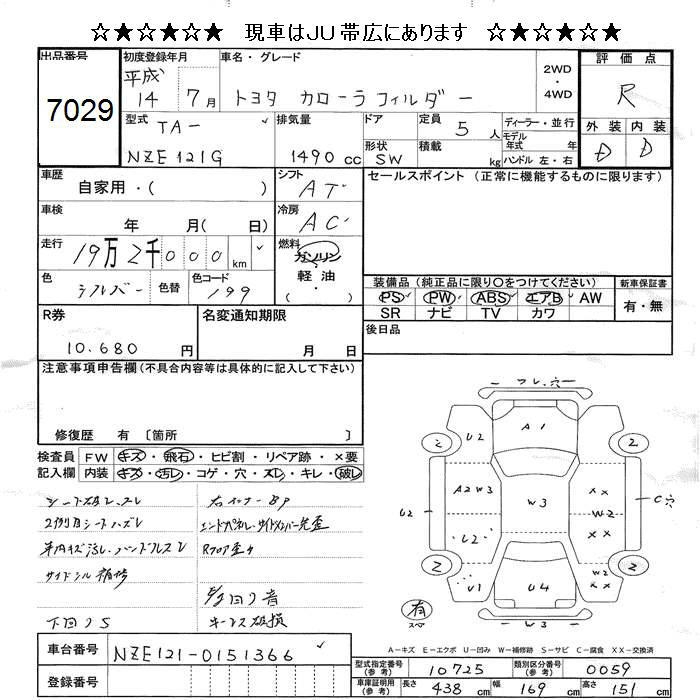 ☆★☆★☆★ 現車はJU帯広にあります ☆★☆★☆★
出品番号 7029
初度登録年月 平成 14 7月
車名・グレード トヨタ カローラフィルダー
2WD・4WD
評価点 R
外装 D 内装 D
型式 TA-
NZE121G
排気量 1490 cc
ドア
形状 SW
定員 5人
積載 kg
ディーラー・並行
モデル年式 年
ハンドル 左・右
車歴 自家用・( )
シフト AT
セールスポイント (正常に機能するものに限ります)
車検 年 月( 日)
冷房 AC
走行 19万2千000km
燃料 ガソリン・軽油・( )
色 シルバー 色替 色コード 199
装備品 (純正品に限り○をつけてください)
PS PW ABS エアB AW
SR ナビ TV カワ
新車保証書 有・無
R券 10.680 円
名変通知期限 月 日
後日品
注意事項申告欄 (不具合内容等は具体的に記入して下さい)
修復歴 有 〔箇所 〕
検査員記入欄
FW キズ・飛石・ヒビ割・リペア跡・×要
内装 キズ・汚レ・コゲ・穴・スレ・キレ・破レ
シート破レ、スレ
2列目シートハズレ
サイドシル補修
下回りS
右インナーBP
Rフロア歪ミ
キーレス破損
フレ、穴
A1
U2 2 2
A2 W3 W3 XX W2 XX
U2 U2 C穴
2 2
U1 U4 W2 XX
有 スペア
W3
A-キズ E-エクボ U-凹み W-補修跡 S-サビ C-腐食 XX-交換済
車台番号 NZE121-0151366
登録番号
型式指定番号 (参考) 10725
類別区分番号 (参考) 0059
車庫証明用 (参考) 長さ 438 cm 幅 169 cm 高さ 151 cm